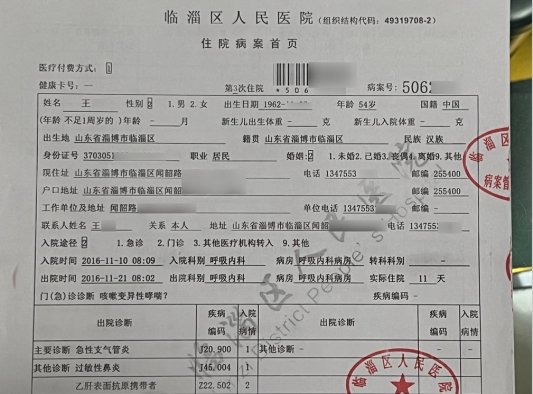 临淄区人民医院(组织结构代码：49319708-2)
住院病案首页
医疗付费方式：1
健康卡号：— 第3次住院 *506 病案号：5062
姓名 王 性别 2 1.男 2.女 出生日期 1962- 年龄 54岁 国籍 中国
(年龄不足1周岁的)年龄 - 月 新生儿出生体重 - 克 新生儿入院体重 - 克
出生地 山东省淄博市临淄区 籍贯 山东省淄博市临淄区 民族 汉族
身份证号 3703051 职业 居民 婚姻：2 1.未婚2.已婚3.丧偶4.离婚9.其他
现住址 山东省淄博市临淄区闻韶路 电话 1347553 邮编 255400
户口地址 山东省淄博市临淄区闻韶 邮编 255400
工作单位及地址 闻韶路 单位电话 1347553 邮编 -
联系人姓名 王 关系 本人 地址 山东省淄博市临淄区闻韶 电话 1347553
入院途径 2 1.急诊 2.门诊 3.其他医疗机构转入 9.其他
入院时间 2016-11-10 08:09 入院科别 呼吸内科 病房 呼吸内科病房 转科科别 -
出院时间 2016-11-21 08:02 出院科别 呼吸内科 病房 呼吸内科病房 实际住院 11 天
门(急)诊诊断 咳嗽变异性哮喘? 疾病编码 -
出院诊断 疾病编码 入院病情 出院诊断 疾病编码 入院病情
主要诊断 急性支气管炎 J20.900 1 其他诊断 - -
其他诊断 过敏性鼻炎 J45.004 1
乙肝表面抗原携带者 Z22.502 2
临淄区人民医院
District People's Hosp
临淄区
病案
临淄区人民医院